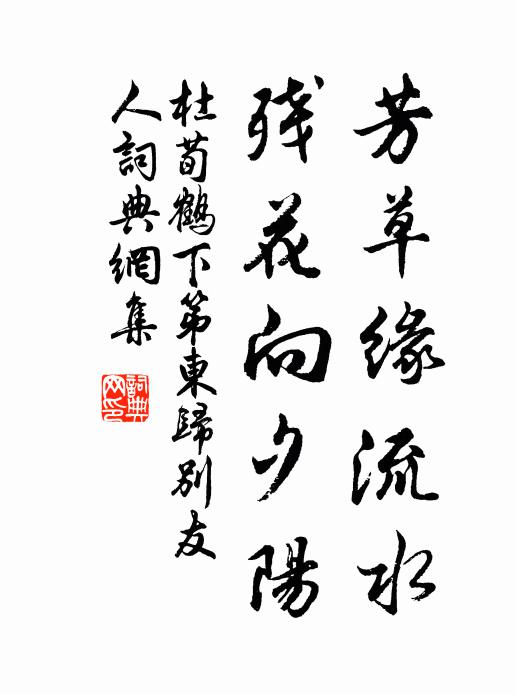 芳草缘流水
残花向夕陽
杜荀鶴下第東歸別友
人詞典網集
詞典網印